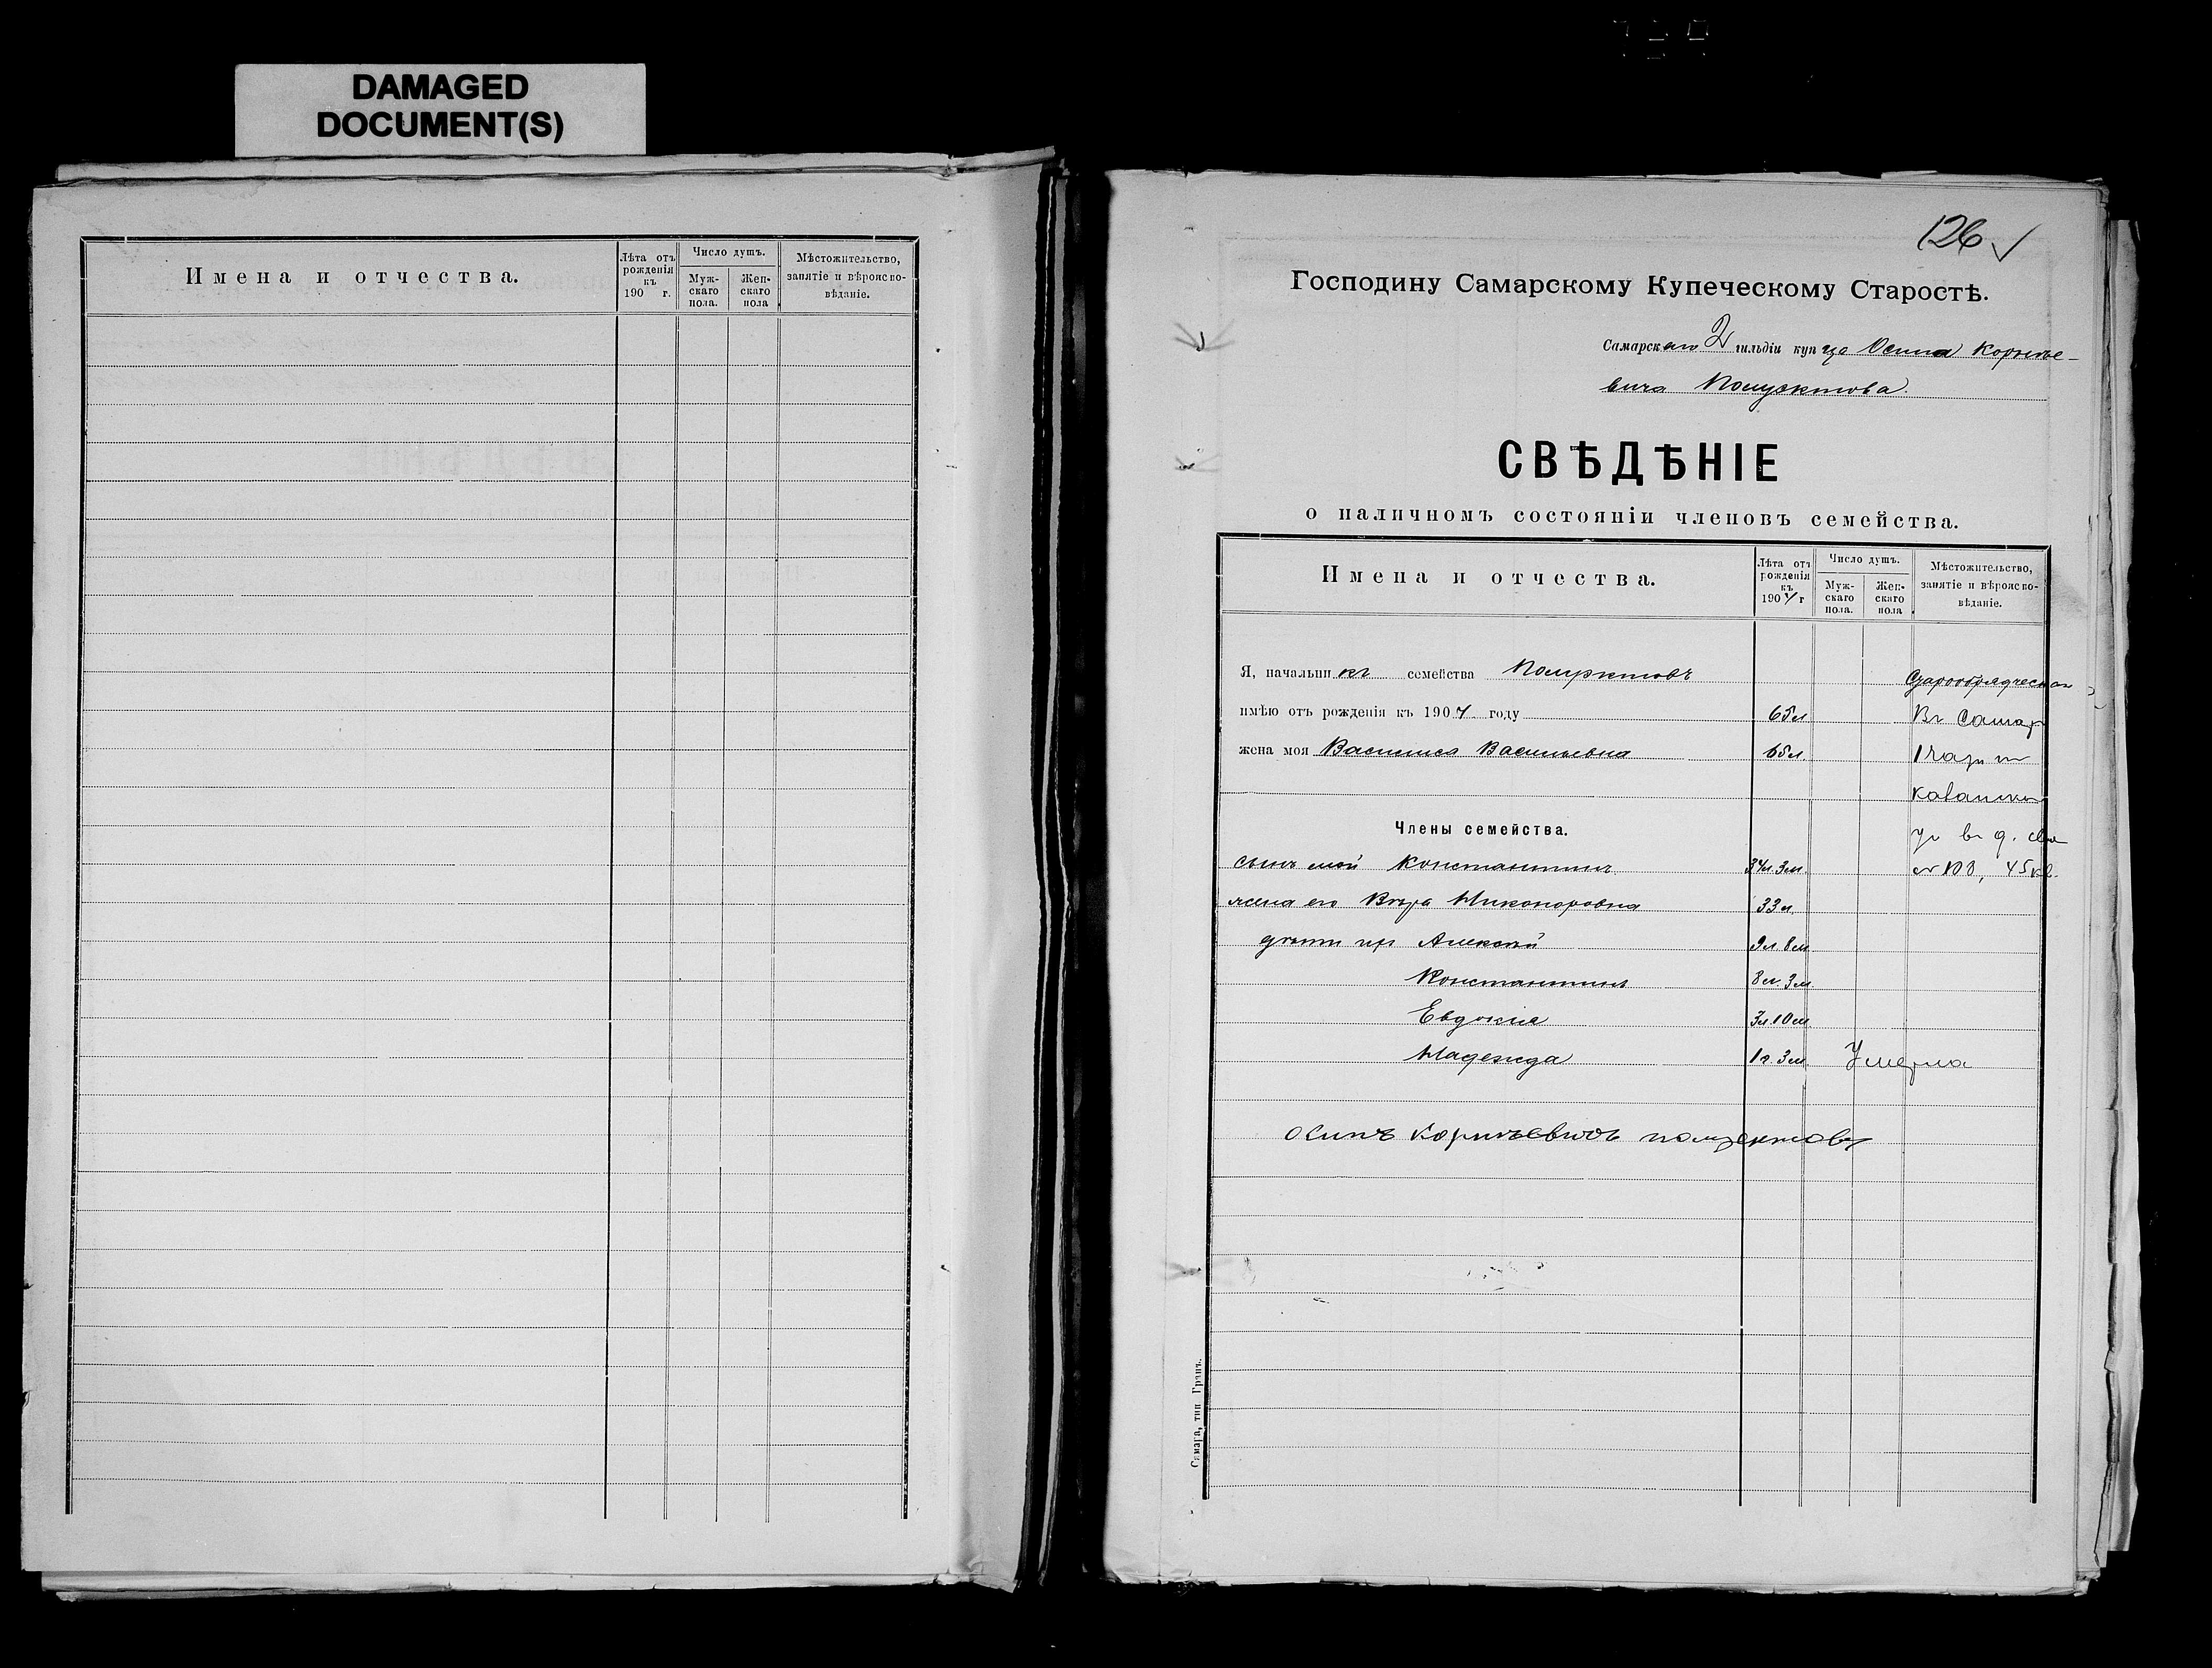 DAMAGED
DOCUMENT(S)
Имена и отчества.
Лѣта отъ рожденія къ 190 г.
Число душъ.
Мужскаго пола.
Женскаго пола
Мѣстожительство, занятіе и вѣроисповѣданіе.
126
Господину Самарскому Купеческому Старостѣ.
Самарскаго 2 гильдіи купца Осипа Корнѣе-
вича Полуектова.
СВѢДѢНІЕ
о наличномъ состояніи членовъ семейства.
Имена и отчества.
Лѣта отъ рожденія къ 1904 г
Число душъ.
Мужскаго пола.
Женскаго пола
Мѣстожительство, занятіе и вѣроисповѣданіе.
Я, начальникъ семейства Полуектовъ
имѣю отъ рожденія къ 1904 году 65л Въ Самар
жена моя Василиса Васильевна 65л.
Члены семейства.
сынъ мой Константинъ 34л. 3м. 45кв.
жена его Вѣра Никоноровна 33л.
дѣти ихъ Алексѣй 9л. 8м.
Константинъ 8л. 3м.
Евдокія 3л. 10м
Надежда 1г. 3м. Умерла
осипъ Корнѣевичъ полуектовъ
Самара, тип. Гранъ.